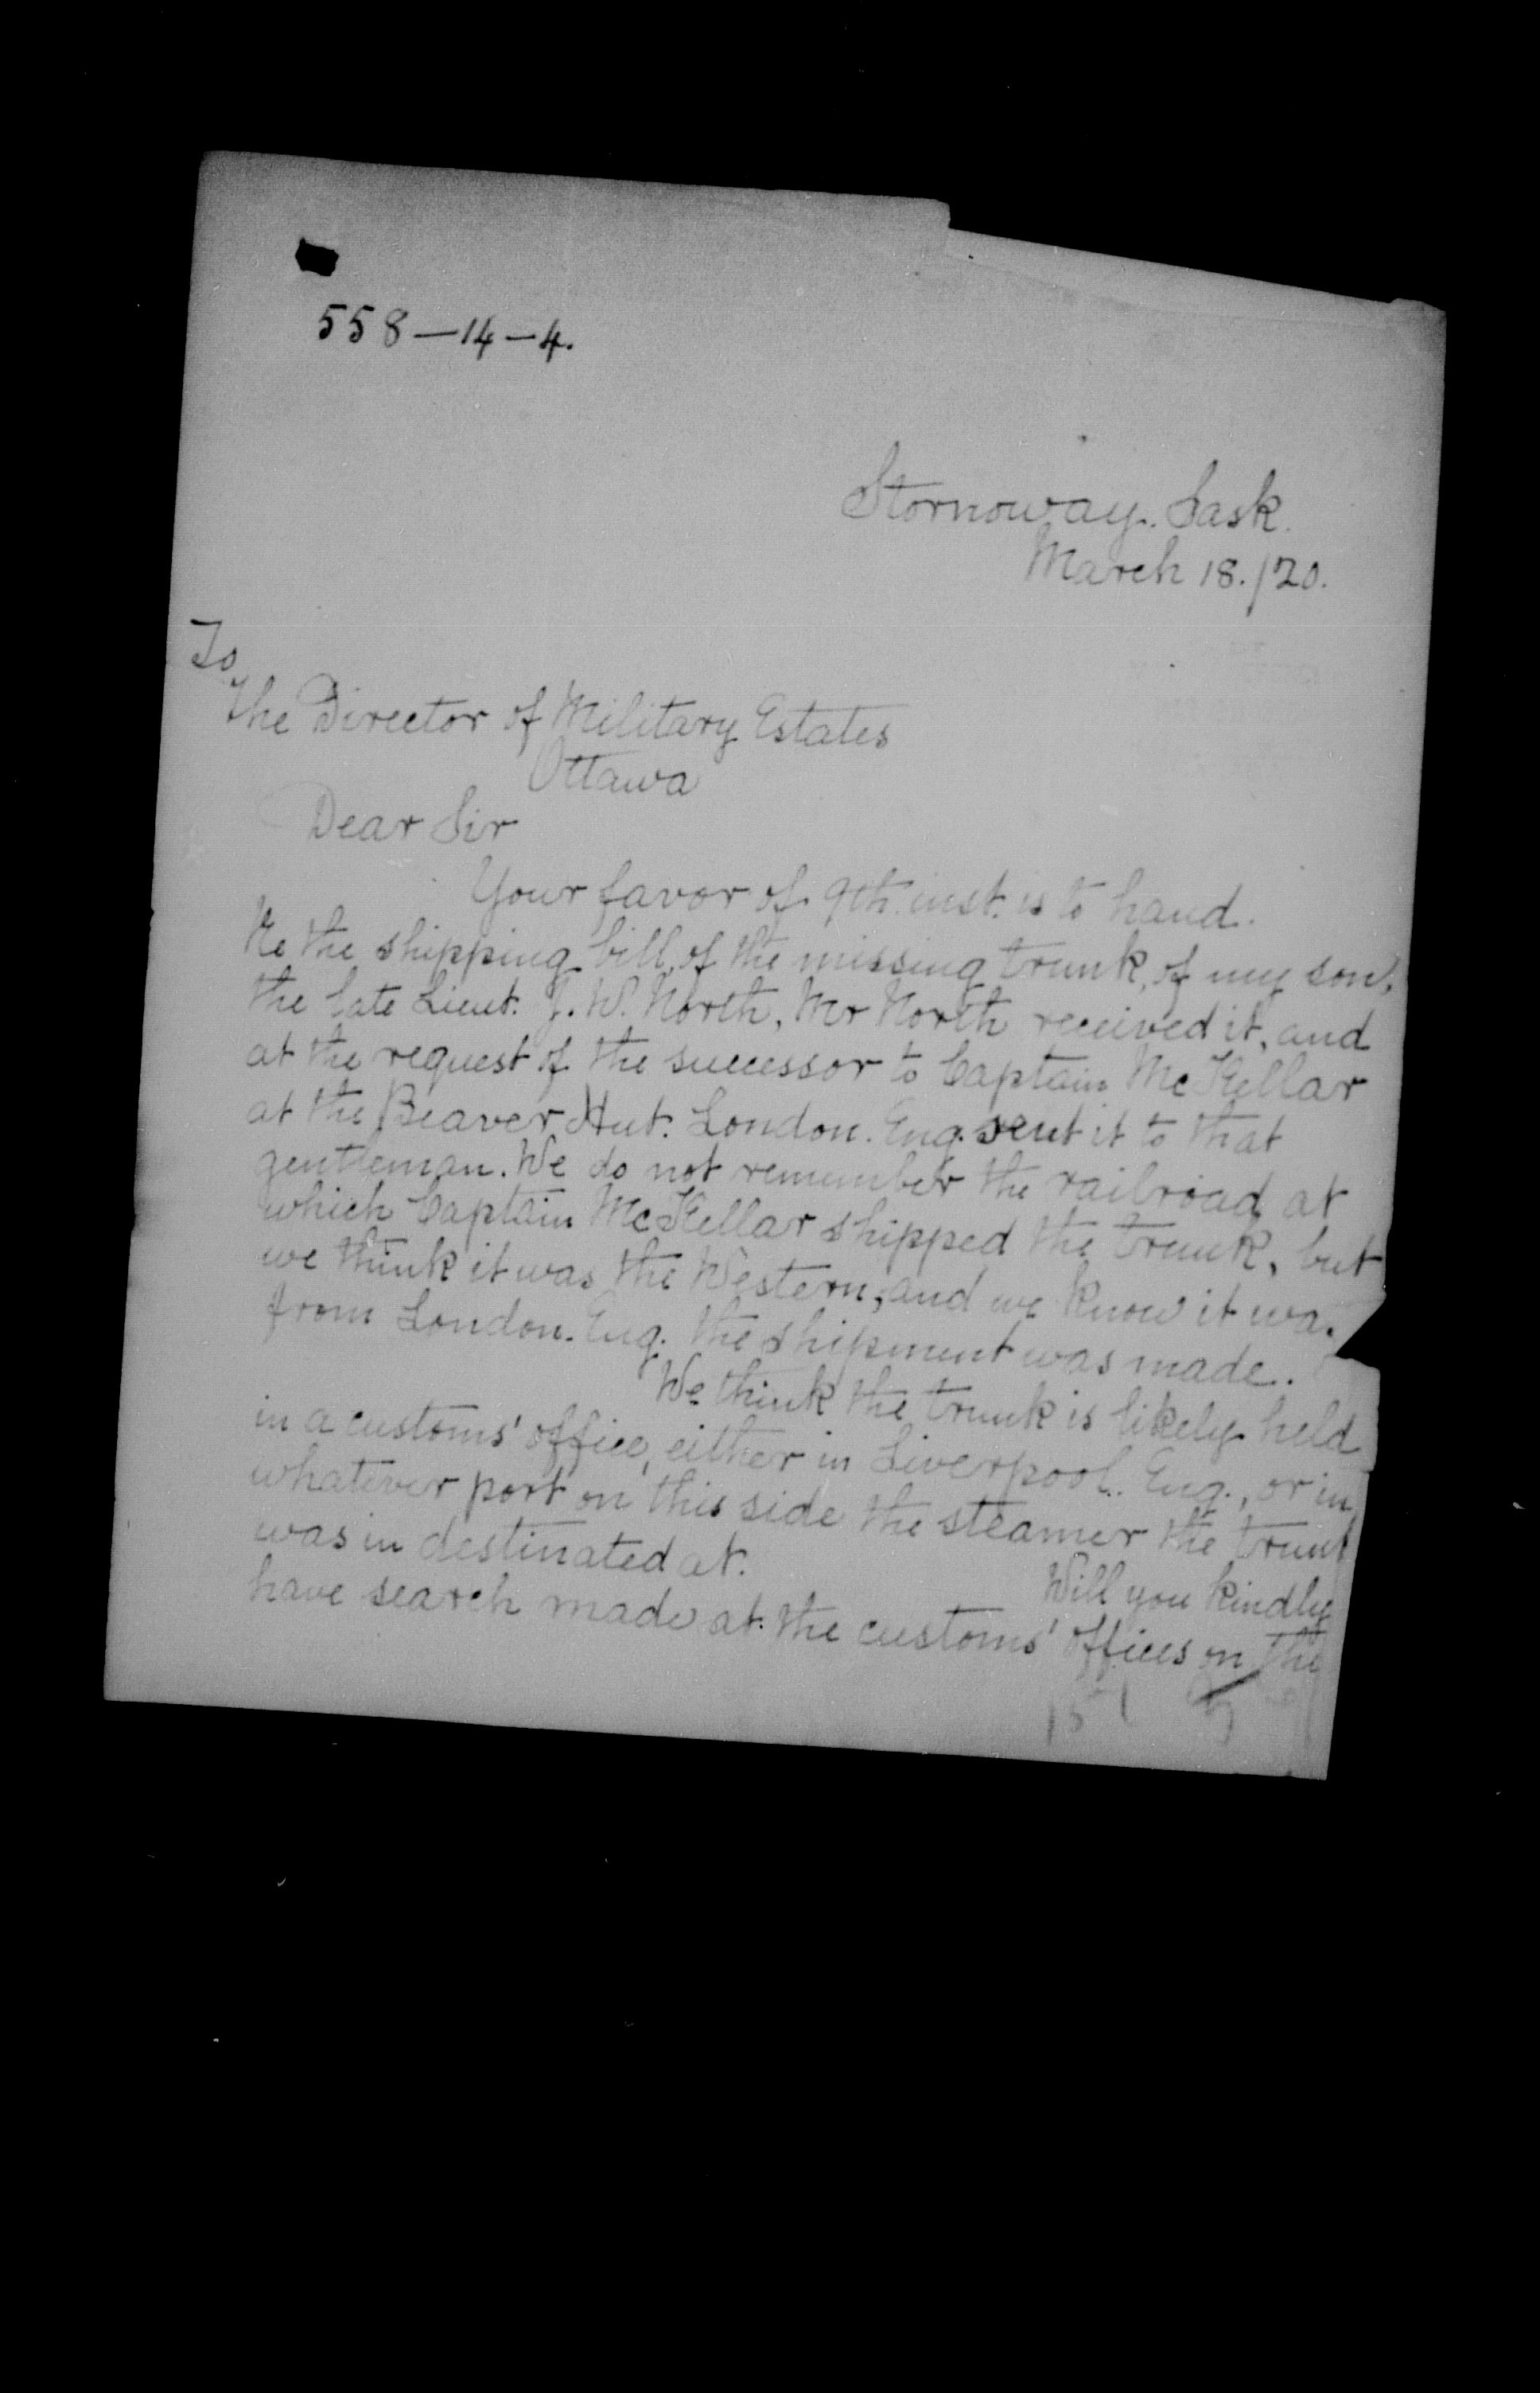 558-14-4.
Stornoway. Sask.
March 18./20.
To
The Director of Military Estates
Ottawa
Dear Sir
Your favor of 9th inst. is to hand.
Re the shipping bill, of the missing trunk, of my son,
the late Lieut. J. W. North, Mr North received it, and
at the request of the successor to Captain McKellar
at the Beaver Hut. London. Eng. sent it to that
gentleman. We do not remember the railroad at
which Captain McKellar shipped the trunk, but
we think it was the Western; and we know it wa
from London. Eng. the shipment was made.
We think the trunk is likely held
in a customs' office, either in Liverpool. Eng., or in
whatever port on this side the steamer the trunk
was in destinated at.
Will you kindly
have search made at the customs' offices on the